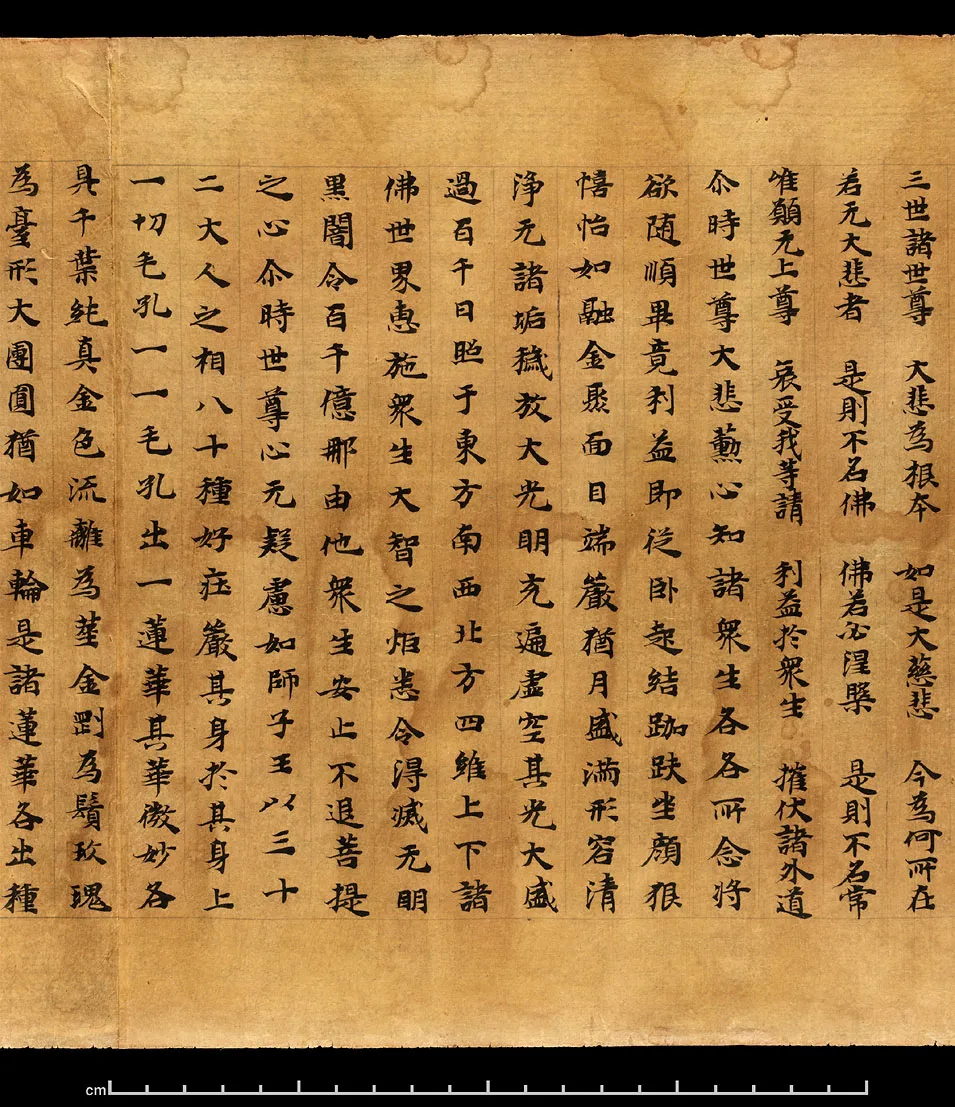 三世諸世尊　大悲為根本　如是大慈悲　今為何所在
若无大悲者　是則不名佛　佛若必涅槃　是則不名常
唯願无上尊　哀受我等請　利益於衆生　摧伏諸外道
尒時世尊大悲勳心知諸衆生各各所念將
欲随順畢竟利益即従卧起結跏趺坐顔狠
憘怡如融金聚面目端嚴猶月盛滿形容清
淨无諸垢穢放大光明充遍虚空其光大盛
過百千日照于東方南西北方四維上下諸
佛世界惠施衆生大智之炬悉令得滅无明
黒闇令百千億那由他衆生安止不退菩提
之心尒時世尊心无疑慮如師子王以三十
二大人之相八十種好莊嚴其身於其身上
一切毛孔一一毛孔出一蓮華其華微妙各
具千葉純真金色流離為莖金剛為鬚玫瑰
為臺形大團圓猶如車輪是諸蓮華各出種
cm